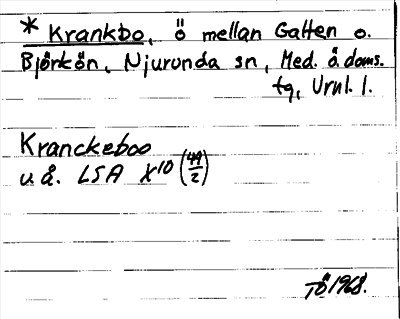 * Krankbo, ö mellan Galten o.
Björkön, Njurunda sn, Med. ö. doms.
tg, Urnl. 1.
Kranckeboo
u. å. LSA X10 (49/2)
TÖ 1968.